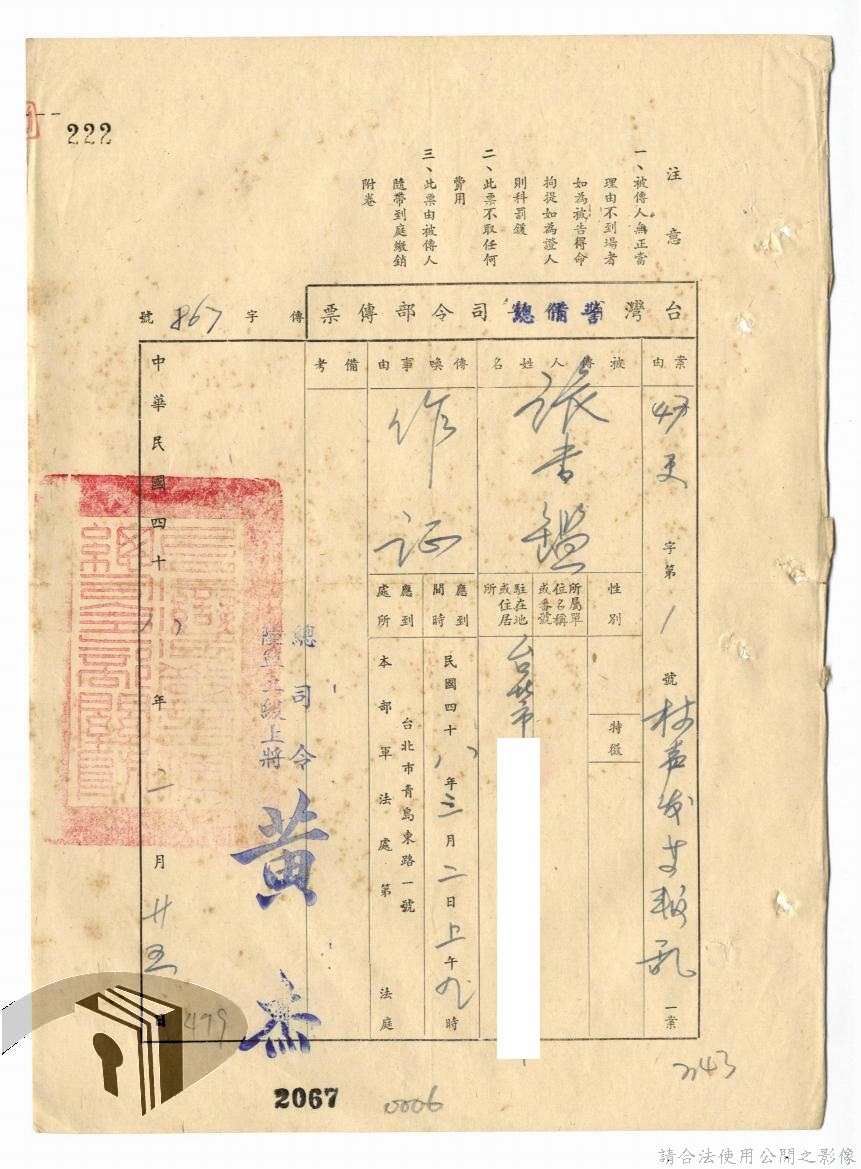 222
注意
一、被傳人無正當
理由不到場者
如為被告得命
拘提如為證人
則科罰鍰
二、此票不取任何
費用
三、此票由被傳人
隨帶到庭繳銷
附卷
台灣警備總司令部傳票
傳字867號
案由
字第1號
一案
被傳人姓名
張書鑑
性別
特徵
所屬單位名稱或番號
駐在地或住居所
台北市
傳喚事由
作証
應到時間
民國四十八年三月二日上午九時
應到處所
台北市青島東路一號
本部軍法處第 法庭
備考
總司令
陸軍二級上將
黃杰
中華民國四十八年二月廿五日
479
2067
0006
請合法使用公開之影像